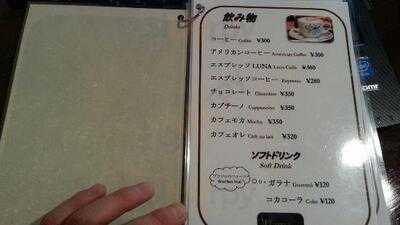 飲み物
Drinks
コーヒー Coffee ¥300
アメリカンコーヒー American Coffee ¥300
エスプレッソ LUNA Luna Caffè ¥360
エスプレッソコーヒー Espresso ¥280
チョコレート Chocolate ¥350
カプチーノ Cappuccino ¥350
カフェモカ Mocha ¥350
カフェオレ Café au lait ¥320
ソフトドリンク
Soft Drink
ガラナ Guaraná ¥120
コカコーラ Coke ¥120